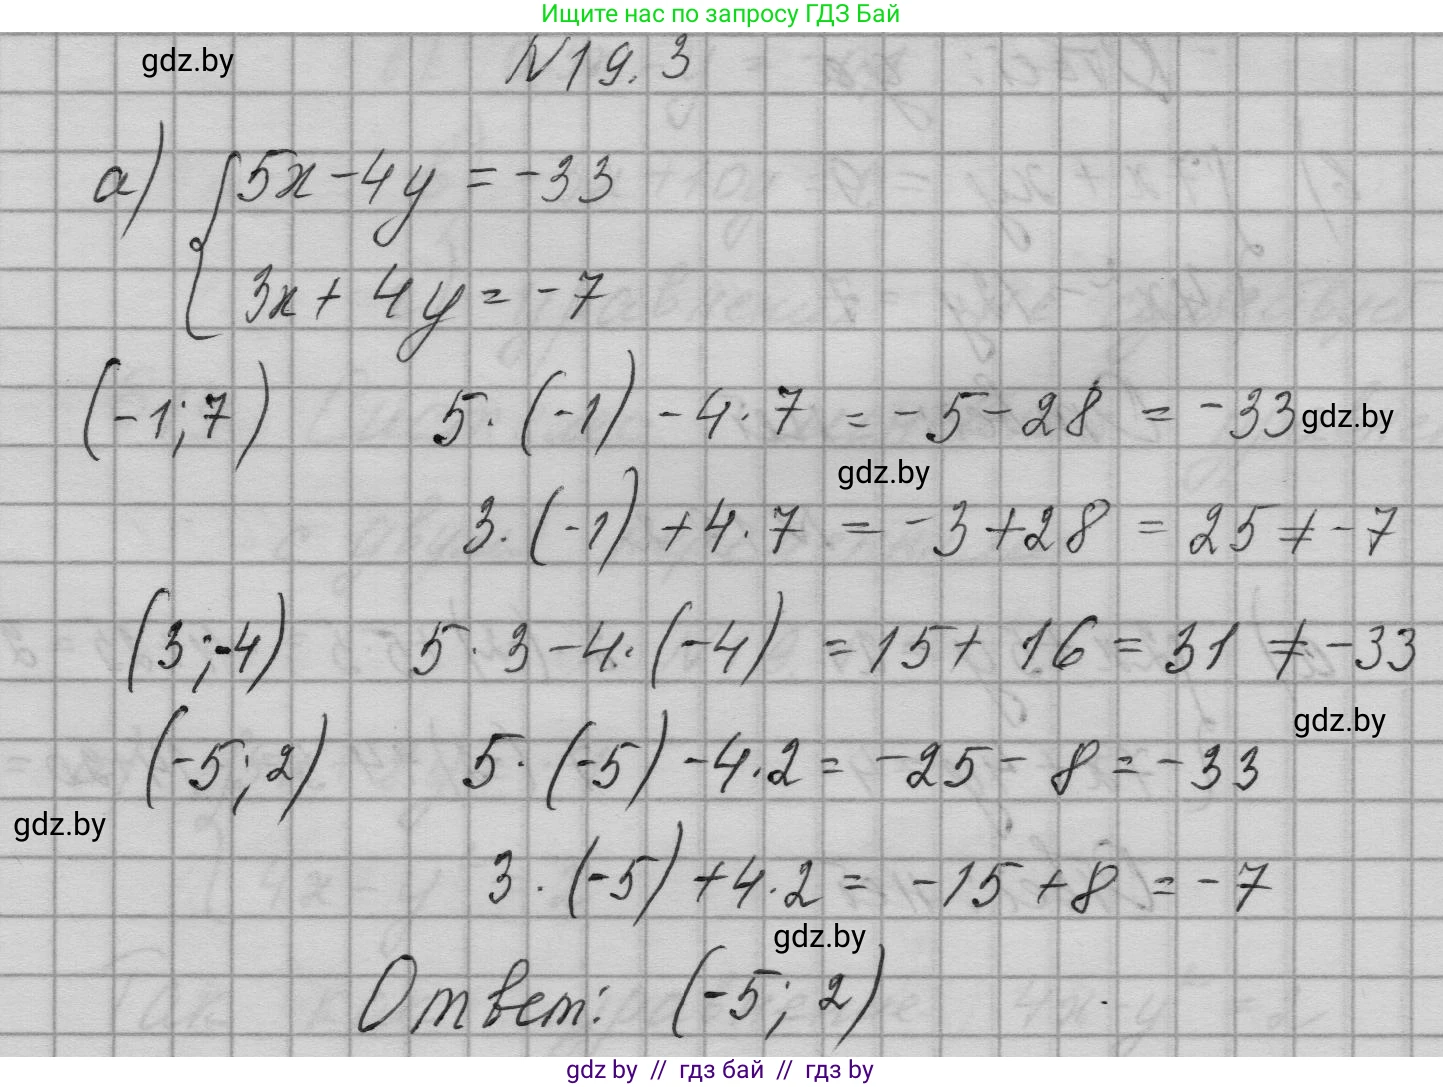 Ищите нас по запросу ГДЗ Бай
gdz.by
N19.3
а) { 5x - 4y = -33
3x + 4y = -7
(-1; 7) 5·(-1) - 4·7 = -5 - 28 = -33 gdz.by
gdz.by
3·(-1) + 4·7 = -3 + 28 = 25 ≠ -7
(3; -4) 5·3 - 4·(-4) = 15 + 16 = 31 ≠ -33
gdz.by
(-5; 2) 5·(-5) - 4·2 = -25 - 8 = -33
gdz.by
3·(-5) + 4·2 = -15 + 8 = -7
gdz.by
Ответ: (-5; 2)
gdz by // гдз бай // гдз by